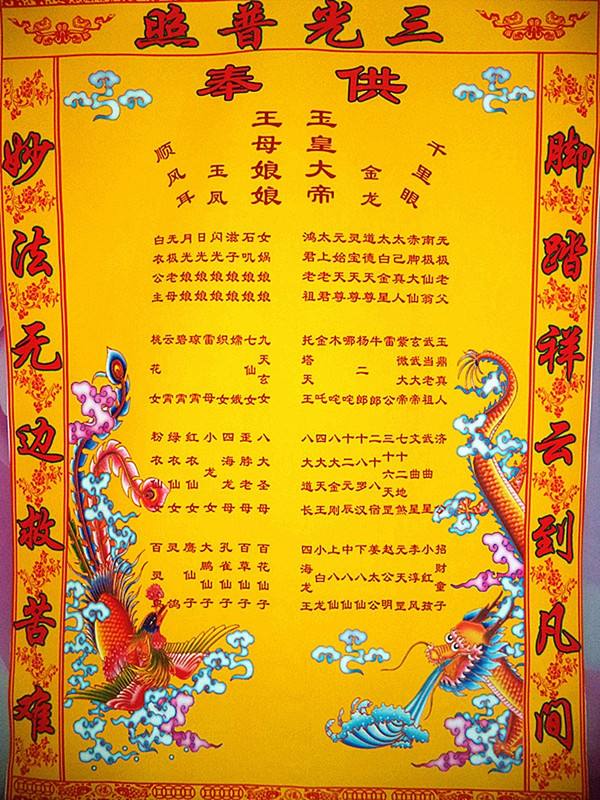 三光普照
供奉
脚踏祥云到凡间
妙法无边救苦难
千里眼
金龙
玉皇大帝
王母娘娘
玉凤
顺风耳
无极老父
南极仙翁
赤脚大仙
太己真人
太白金星
道德天尊
灵宝天尊
元始天尊
太上老君
鸿君老祖
女娲娘娘
石叽娘娘
滋子娘娘
闪光娘娘
日光娘娘
月光娘娘
无极老母
白衣公主
玉鼎真人
武当老祖
玄武大帝
紫微大帝
雷公
牛郎
杨二郎
哪咤
木咤
金吒
托塔天王
九天玄女
七仙女
嫦娥
织女
雷母
琼霄
碧霄
云霄
桃花女
济
武曲星
文曲星
七十二地煞
三十六天罡
二十八宿
十八罗汉
十二元辰
八大金刚
四大天王
八大道长
八大圣母
歪脖老母
四海龙母
小龙女
红衣仙女
绿衣仙女
粉衣仙女
招财童子
小红孩
李淳风
元天罡
赵公明
姜太公
下八仙
中八仙
上八仙
小白龙
四海龙王
百花仙子
百草仙子
孔雀仙子
大鹏仙子
鹰仙子
灵鸽
百灵鸟